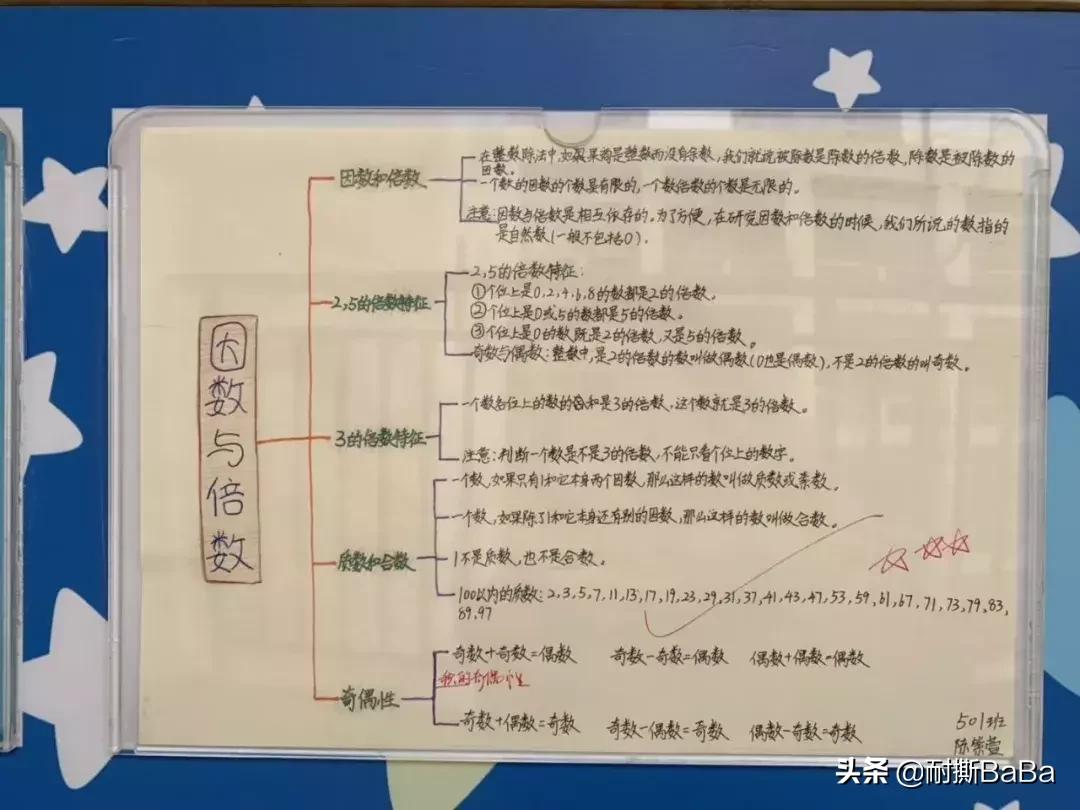 因数与倍数
因数和倍数
在整数除法中,如果商是整数而没有余数,我们就说被除数是除数的倍数,除数是被除数的
因数。
一个数的因数的个数是有限的,一个数倍数的个数是无限的。
注意:因数与倍数是相互依存的。为了方便,在研究因数和倍数的时候,我们所说的数指的
是自然数(一般不包括0).
2,5的倍数特征
2,5的倍数特征:
①个位上是0,2,4,6,8的数都是2的倍数。
②个位上是0或5的数都是5的倍数。
③个位上是0的数既是2的倍数,又是5的倍数。
奇数与偶数:整数中,是2的倍数的数叫做偶数(0也是偶数),不是2的倍数的叫奇数。
3的倍数特征
一个数各位上的数的和是3的倍数,这个数就是3的倍数。
注意:判断一个数是不是3的倍数,不能只看个位上的数字。
质数和合数
一个数,如果只有1和它本身两个因数,那么这样的数叫做质数或素数。
一个数,如果除了1和它本身还有别的因数,那么这样的数叫做合数。
1不是质数,也不是合数。
100以内的质数:2,3,5,7,11,13,17,19,23,29,31,37,41,43,47,53,59,61,67,71,73,79,83,
89,97
奇偶性
奇数+奇数=偶数 奇数-奇数=偶数 偶数+偶数=偶数
积的奇偶性
奇数+偶数=奇数 奇数-偶数=奇数 偶数-奇数=奇数
501班
陈紫萱
头条 @耐撕BaBa